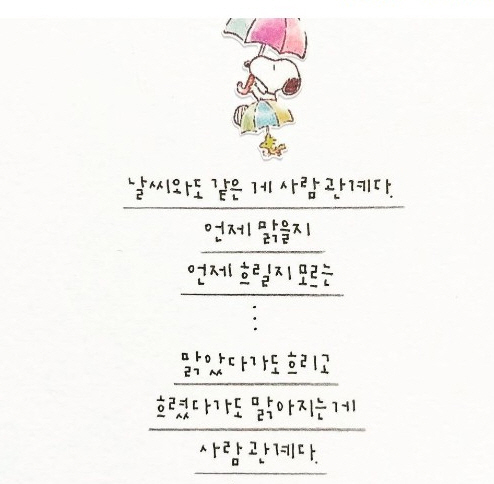 날씨와도 같은 게 사람 관계다.
언제 맑을지
언제 흐릴지 모르는
⋮
맑았다가도 흐리고
흐렸다가도 맑아지는 게
사람 관계다.